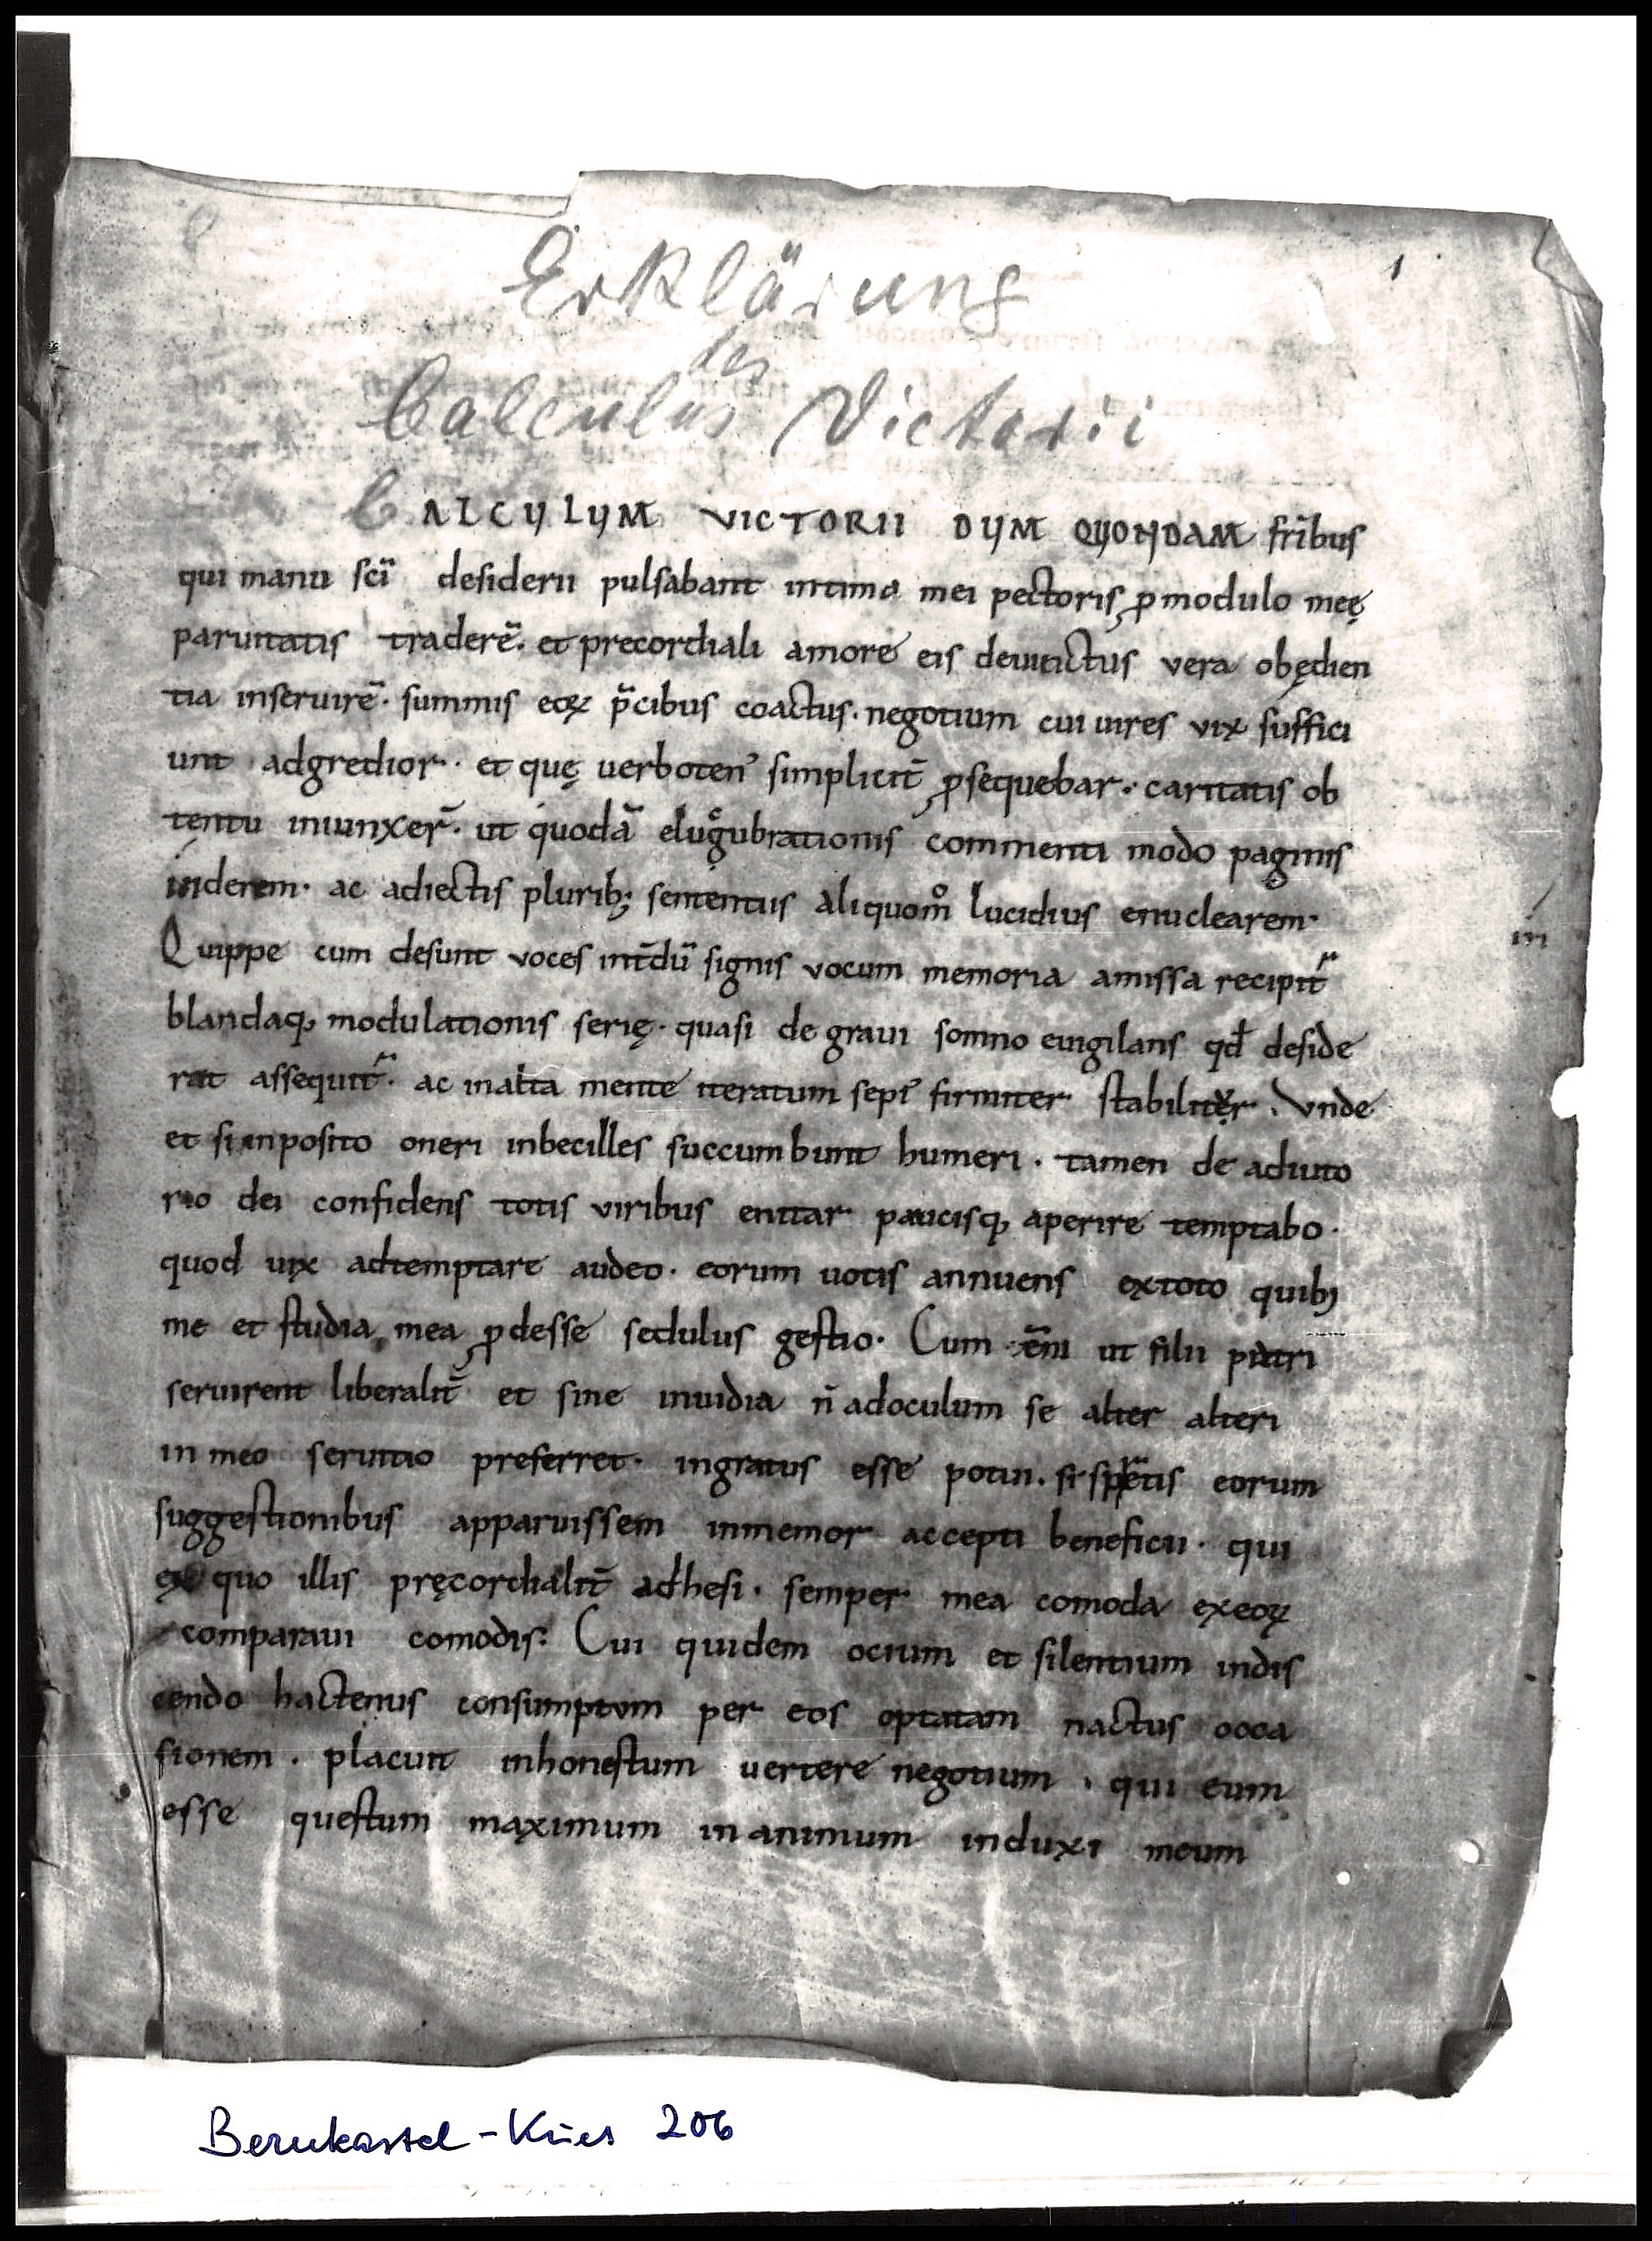 Erklärung
1
des
Calculus Victorii
CALCULUM VICTORII DUM QUONDAM fr̄ibus
qui manu sc̄i desiderii pulsabant intima mei pectoris ꝓ modulo meę
paruitatis traderē. et precordiali amore eis deuinctus vera obędien
tia inseruirē. summis eoꝝ p̄cibus coactus. negotium cui uires vix suffici
unt adgredior. et quę verboten' simplicit̄ ꝓsequebar. caritatis ob
tentu iniunxer̄. ut quodā elugubrationis commenti modo paginis
inderem. ac adiectis plurib; sententiis aliquom̊ lucidius enuclearem.
Quippe cum desunt voces int̄dū signis vocum memoria amissa recipit᷑
in
blandaq; modulationis serię. quasi de graui somno euigilans qđ deside
rat assequit᷑. ac in alta mente iteratum sepi' firmiter stabiliter. Vnde
et si inposito oneri inbecilles succumbunt humeri. tamen de adiuto
rio dei confidens totis viribus enitar paucisq; aperire temptabo.
quod uix adtemptare audeo. eorum uotis annuens ex toto quib;
me et studia mea ꝓdesse sedulus gestio. Cum eni̅ ut filii patri
seruirent liberalit̄ et sine inuidia n̄ ad oculum se alter alteri
in meo seruitio preferret. ingratus esse potui. si spretis eorum
suggestionibus apparuissem inmemor accepti beneficii. qui
ex quo illis pręcordialit̄ adhesi. semper mea comoda ex eoꝝ
comparaui comodis. Cui quidem ocium et silentium indis
cendo hactenus consumptum per eos optatam nactus occa
sionem. placuit in honestum uertere negotium. qui eum
esse questum maximum in animum induxi meum
Bernkastel-Kues 206